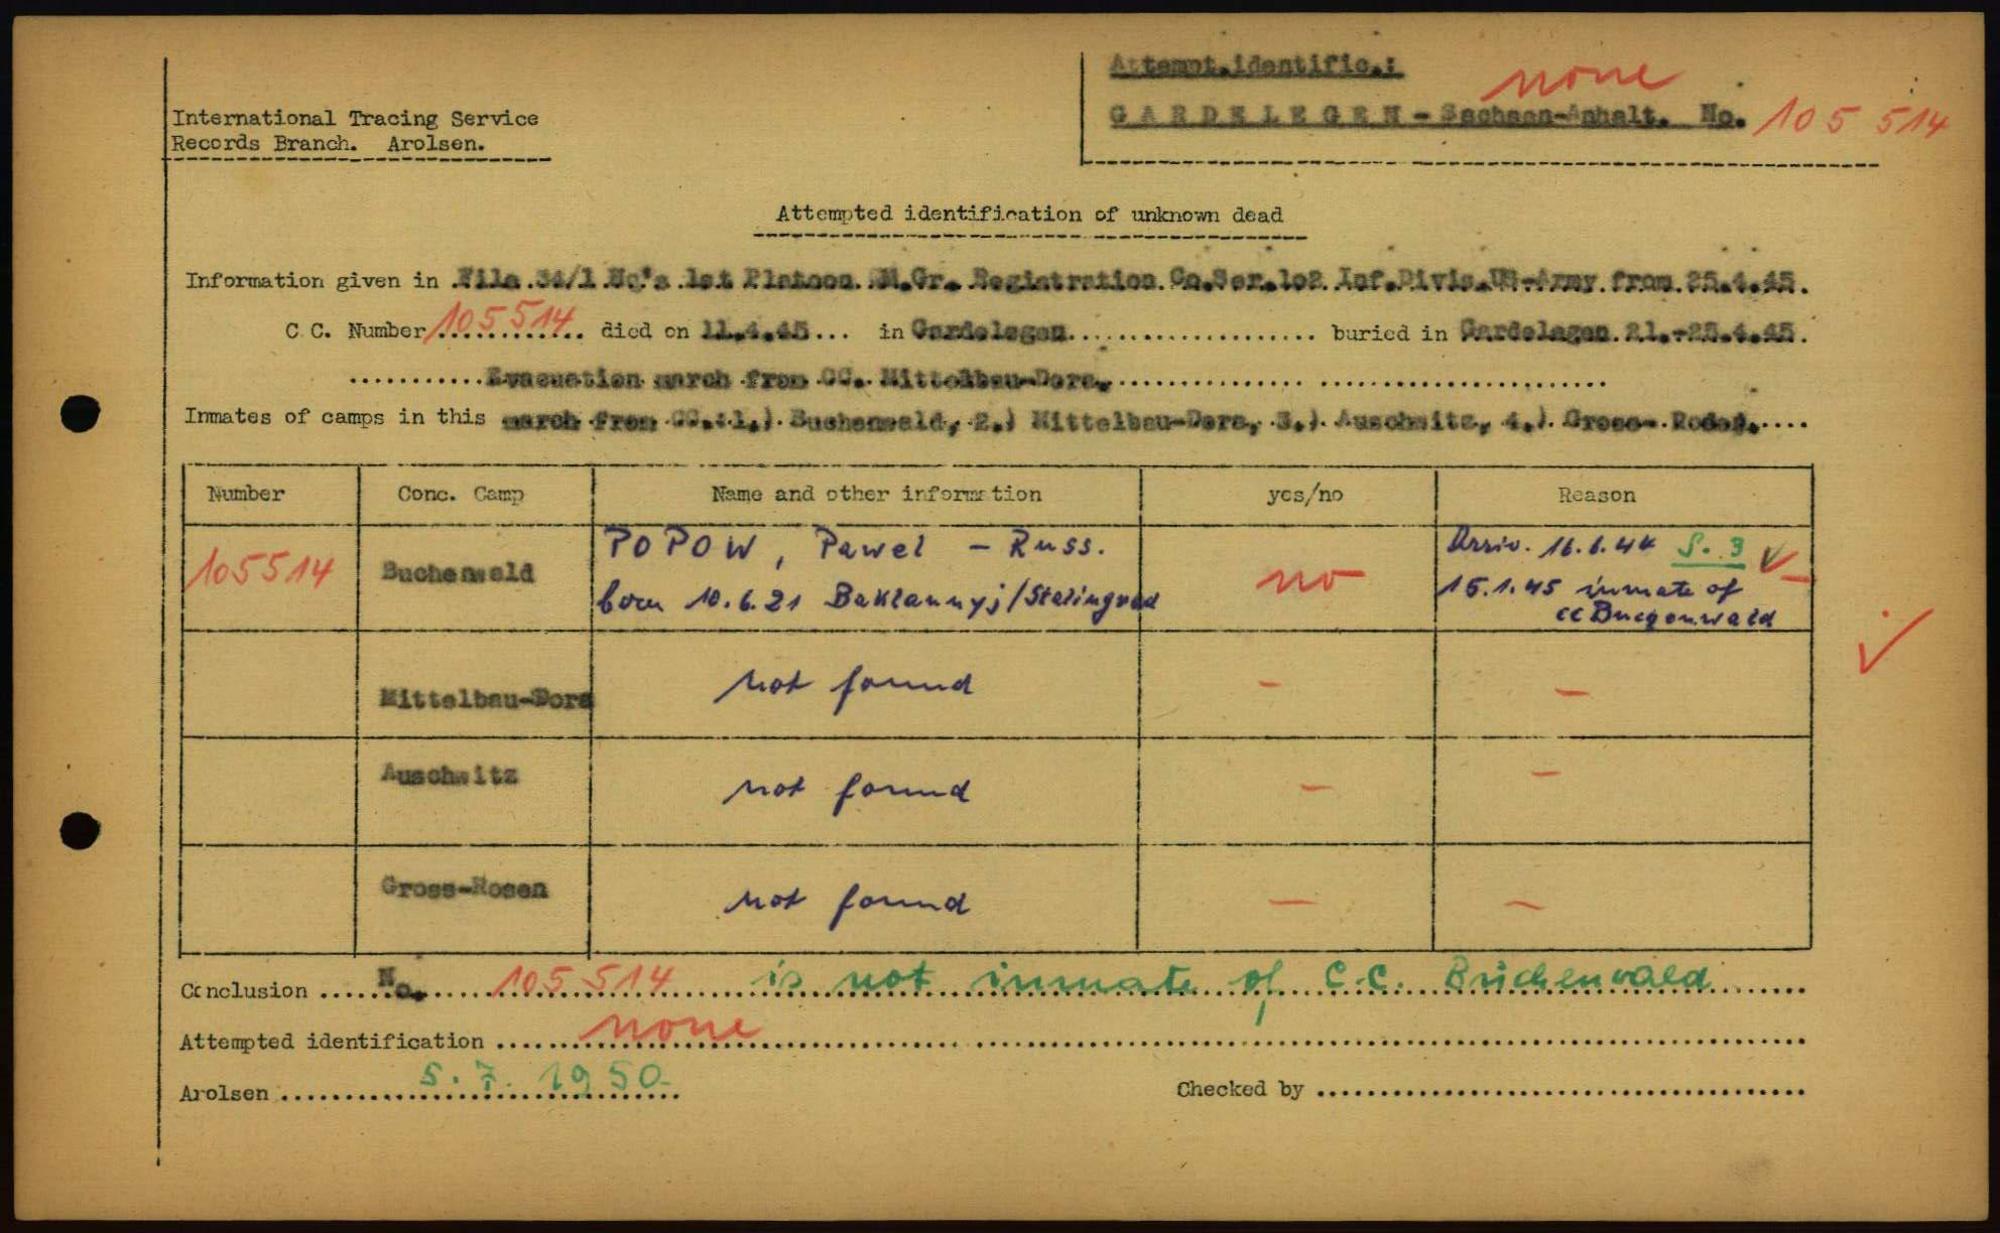 Attempt.identific.:
none
GARDELEGEN - Sachsen-Anhalt. No. 105 514
International Tracing Service
Records Branch. Arolsen.
Attempted identification of unknown dead
Information given in File 34/1 Hq's 1st Platoon M.Gr. Registration Co.Ser.102 Inf.Divis.US-Army from 25.4.45.
C.C. Number 105514 died on 11.4.45 in Gardelegen buried in Gardelegen 21.-25.4.45.
Evacuation march from CC. Mittelbau-Dora,
Inmates of camps in this march from CC.:1.) Buchenwald, 2.) Mittelbau-Dora, 3.) Auschwitz, 4.) Gross-
Number Conc. Camp Name and other information yes/no Reason
105514 Buchenwald POPOW, Pawel - Russ. no Arriv. 16.6.44 S. 3
born 10.6.21 Baklannyj/Stalingrad 15.1.45 inmate of
cc
Mittelbau-Dora not found - -
Auschwitz not found - -
Gross-Rosen not found - -
Conclusion No. 105514 is not inmate of C.C. Buchenwald
Attempted identification none
Arolsen 5.7.1950 Checked by